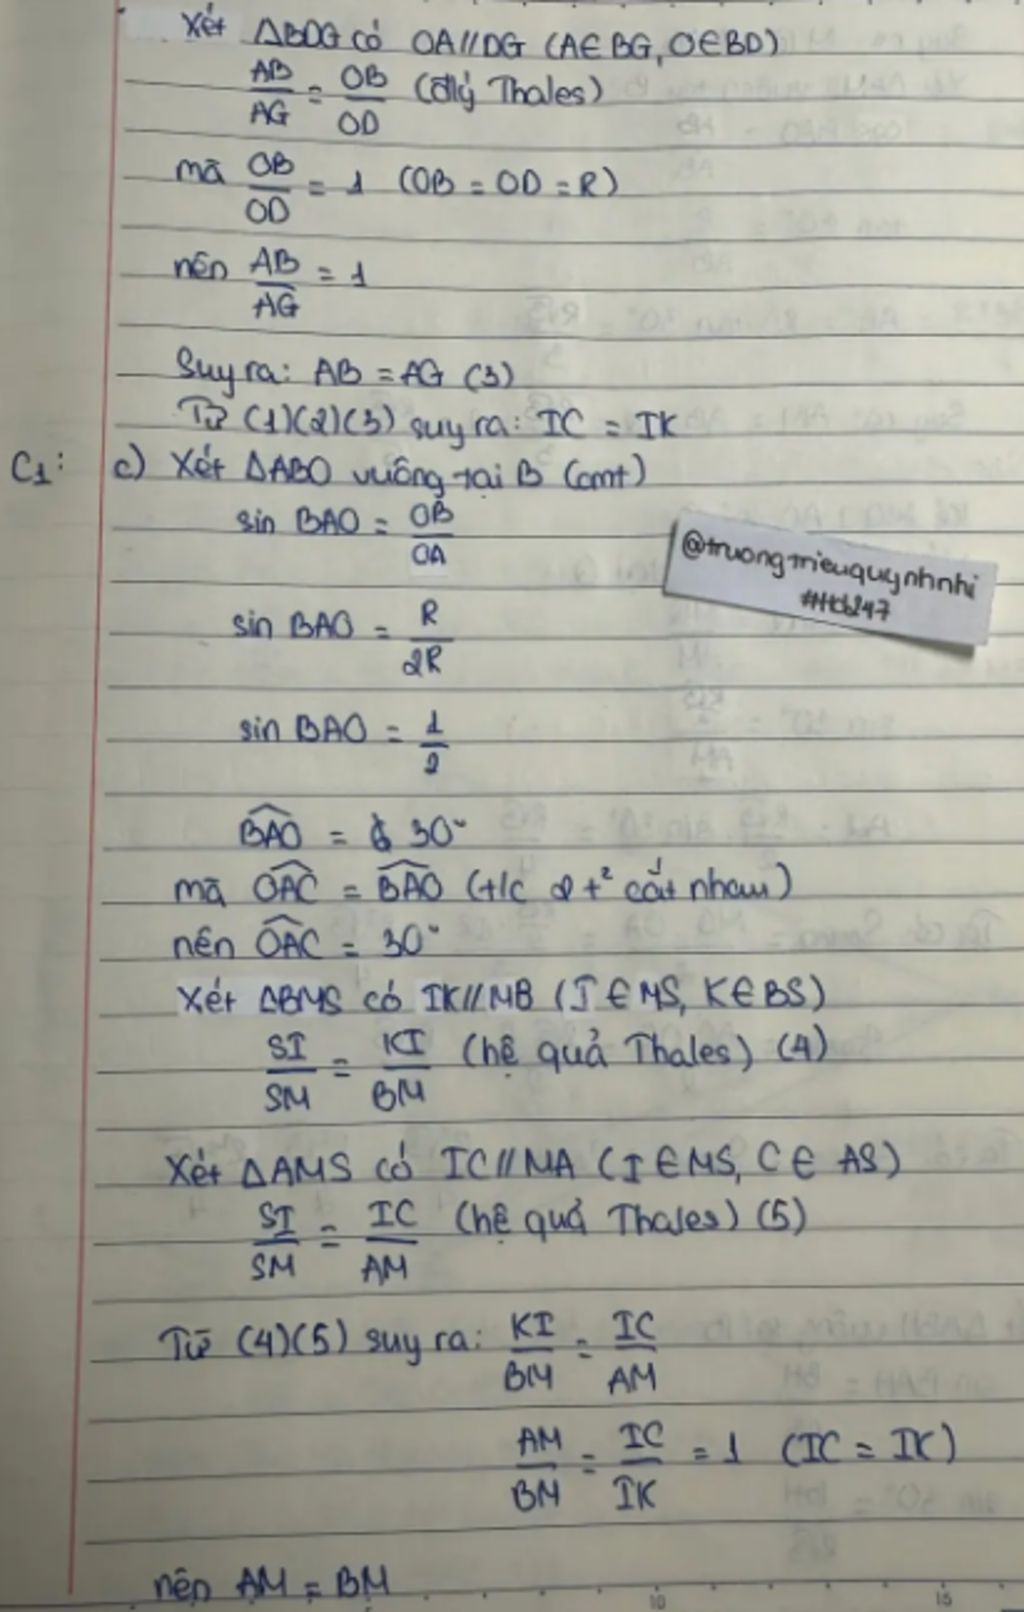 Xét ΔBDG có OA//DG (A∈BG, O∈BD)
AB/AG = OB/OD (đlý Thales)
mà OB/OD = 1 (OB = OD = R)
nên AB/AG = 1
Suy ra: AB = AG (3)
Từ (1)(2)(3) suy ra: IC = IK
C1: c) Xét ΔABO vuông tại B (cmt)
sin BAO = OB/OA
@truongtrieuquynhnhi
sin BAO = R/2R
sin BAO = 1/2
BAO = 30°
mà OAC = BAO (t/c 2 t² cắt nhau)
nên OAC = 30°
Xét ΔBMS có IK//MB (I∈MS, K∈BS)
SI/SM = KI/BM (hệ quả Thales) (4)
Xét ΔAMS có IC//MA (I∈MS, C∈AS)
SI/SM = IC/AM (hệ quả Thales) (5)
Từ (4)(5) suy ra: KI/BM = IC/AM
AM/BM = IC/IK = 1 (IC = IK)
nên AM = BM
10 15